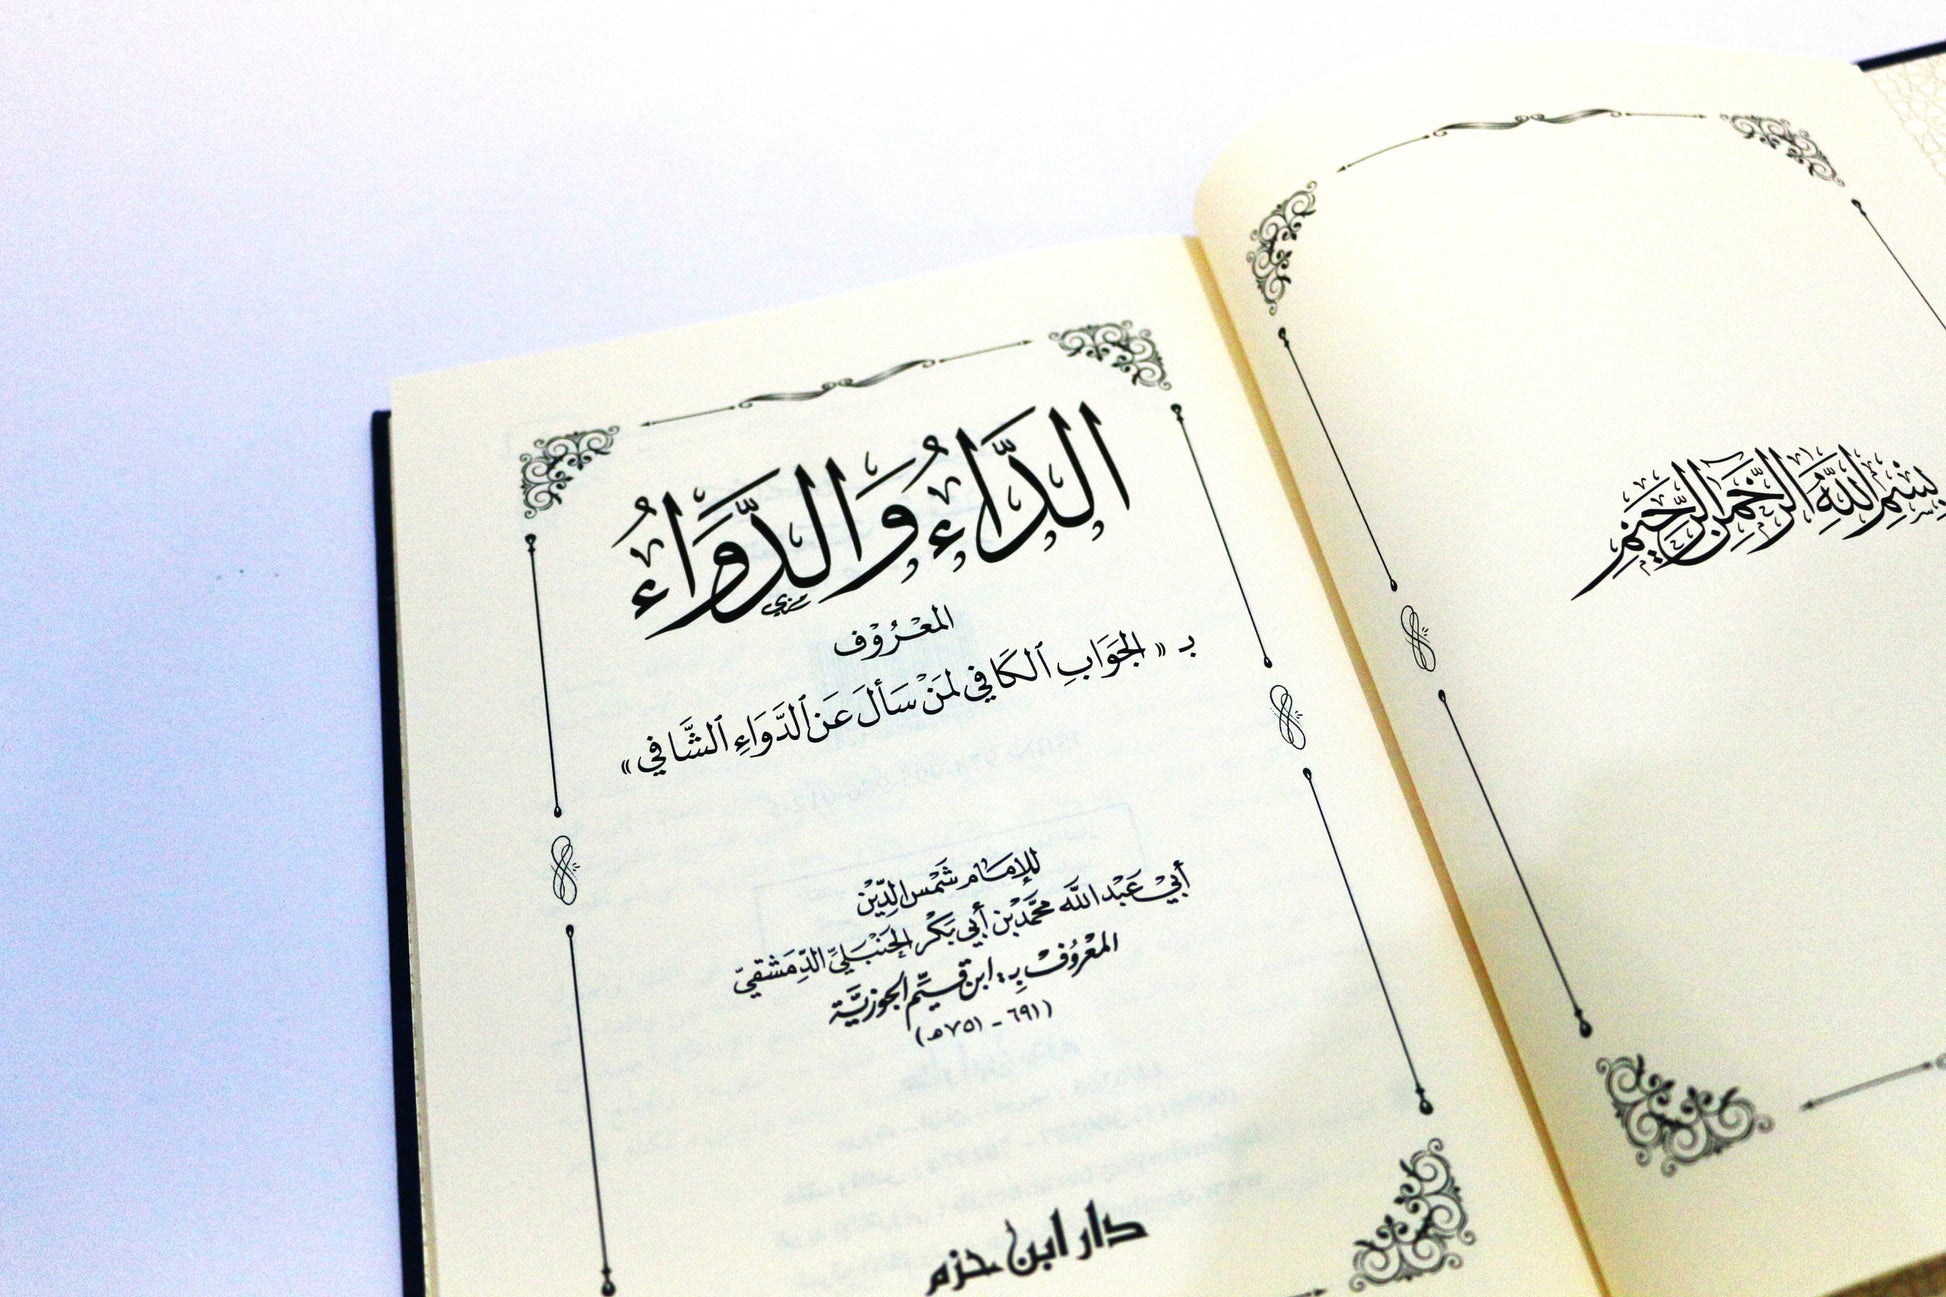 بِسْمِ اللَّهِ الرَّحْمَنِ الرَّحِيمِ
الدَّاءُ وَالدَّوَاءُ
المَعْرُوْف
بـ «الجَوَابِ ٱلكَافِي لمَنْ سَأَلَ عَنِ ٱلدَّوَاءِ ٱلشَّافِي»
للإمَام شَمْس الدِّيْن
أبِيْ عَبْد اللَّه محَمَّد بْن أبِي بَكْر الحَنْبَليِّ الدِّمَشْقِيّ
المَعْرُوْف بِـ: ابن قَيِّم الجَوزِيَّة
(٦٩١ - ٧٥١هـ)
دار ابن حزم